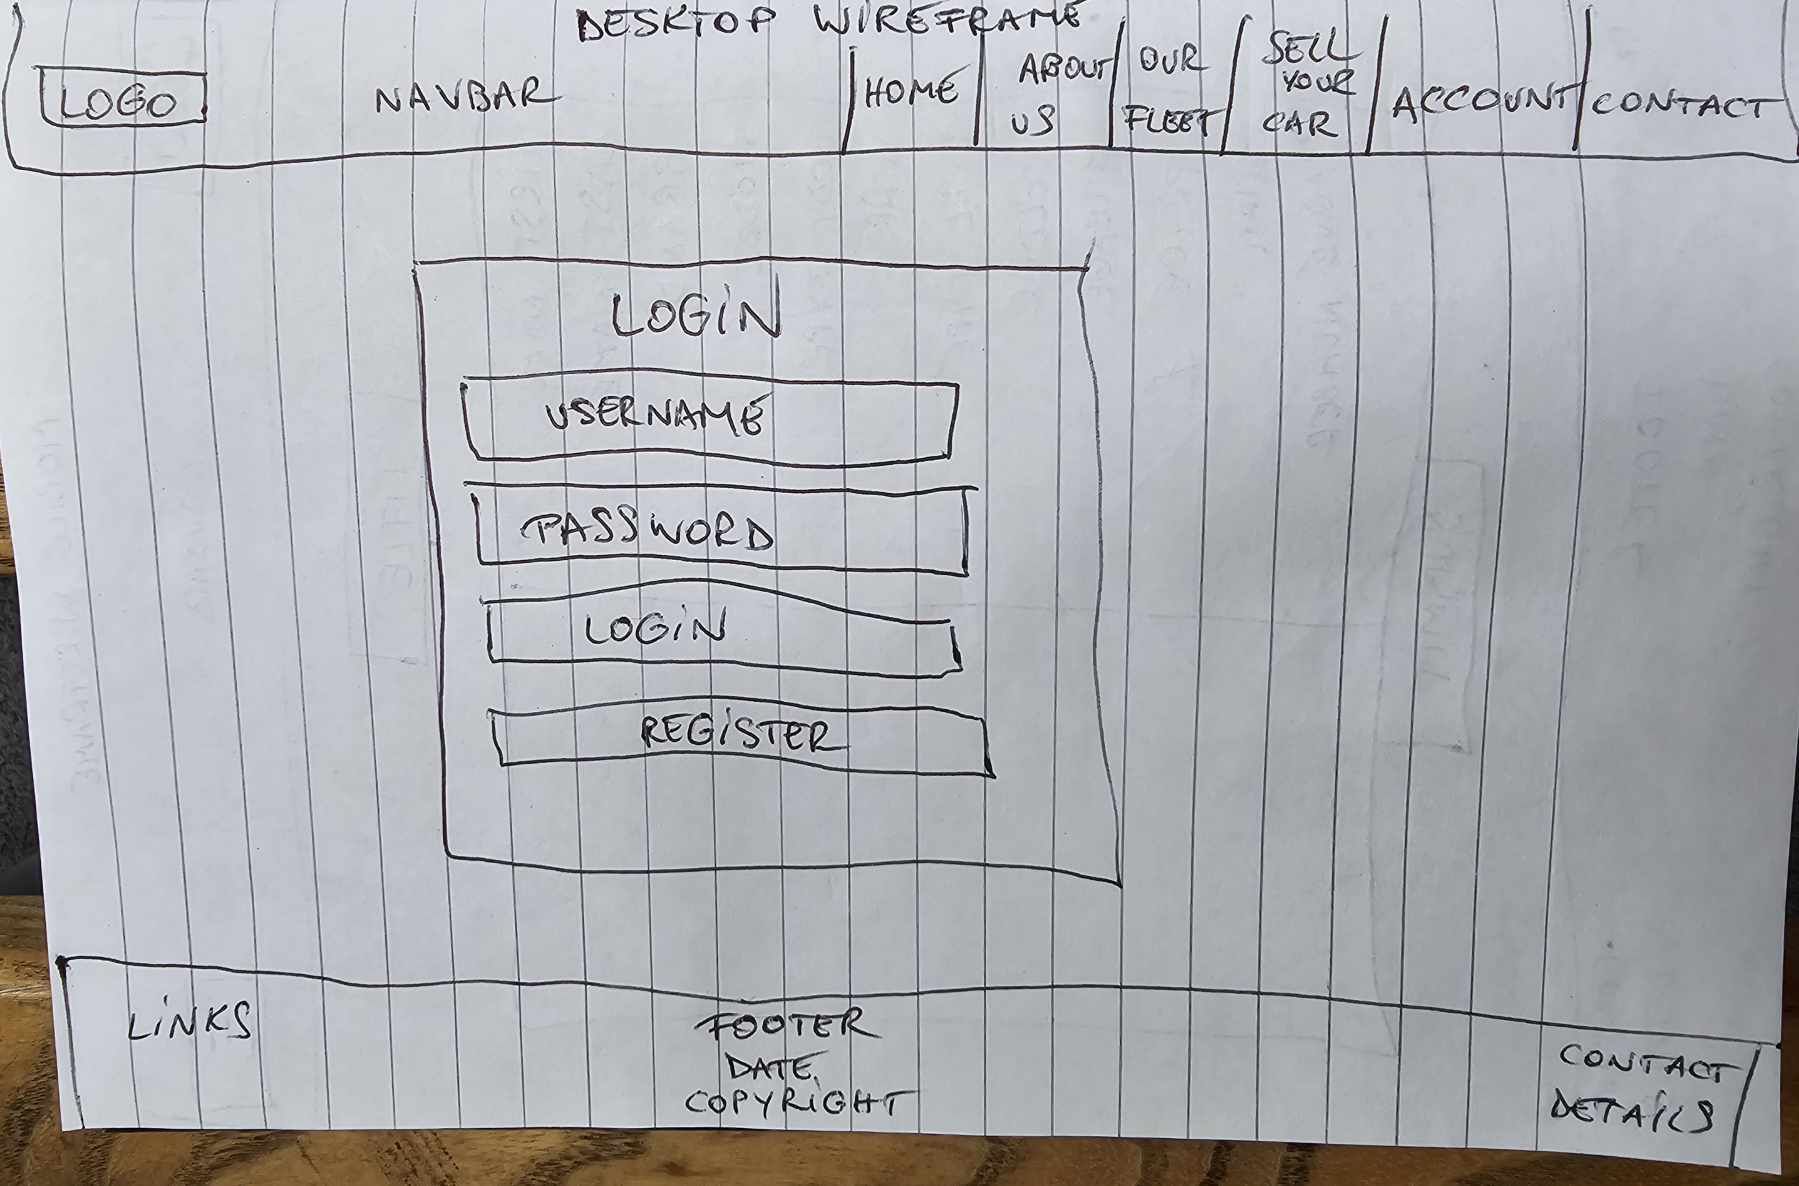 DESKTOP WIREFRAME
LOGO
NAVBAR
HOME
ABOUT
US
OUR
FLEET
SELL
YOUR
CAR
ACCOUNT
CONTACT
LOGIN
USERNAME
PASSWORD
LOGIN
REGISTER
LINKS
FOOTER
DATE,
COPYRIGHT
CONTACT
DETAILS